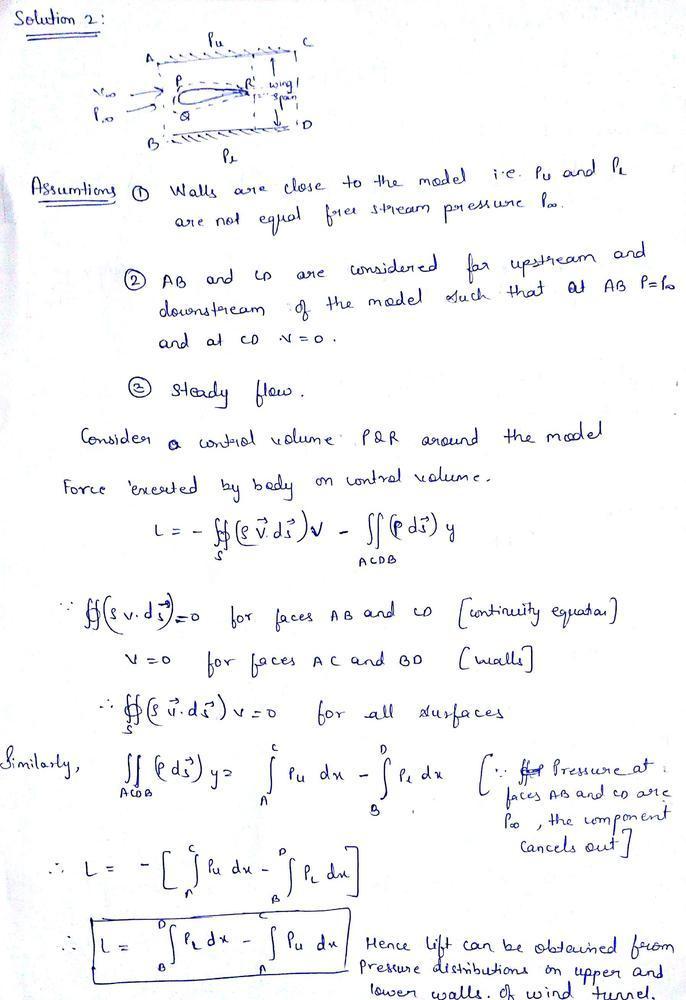 Solution 2:
Pu
A C
P R
V∞ wing
span
P∞
Q
B D
PL
Assumtions ① Walls are close to the model i.e. Pu and PL
are not equal free stream pressure P∞.
② AB and CD are considered far upstream and
downstream of the model such that at AB P=P∞
and at CD V=0.
③ Steady flow.
Consider a control volume PQR around the model
Force exerted by body on control volume.
L = - ∯(ρ v⃗.ds⃗)v - ∬(p ds⃗) y
S ACDB
∵ ∯(ρ v.ds⃗)=0 for faces AB and CD [continuity equation]
v=0 for faces AC and BD [walls]
∴ ∯(ρ v⃗.ds⃗)v=0 for all surfaces
S
Similarly, ∬(p ds⃗) y= ∫ Pu dx - ∫ PL dx [∵ Pressure at
ACDB A C B D faces AB and CD are
P∞, the component
cancels out]
∴ L = -[∫ Pu dx - ∫ PL dx]
A C B D
∴ L = ∫ PL dx - ∫ Pu dx Hence lift can be obtained from
B D A C Pressure distributions on upper and
lower walls of wind tunnel.